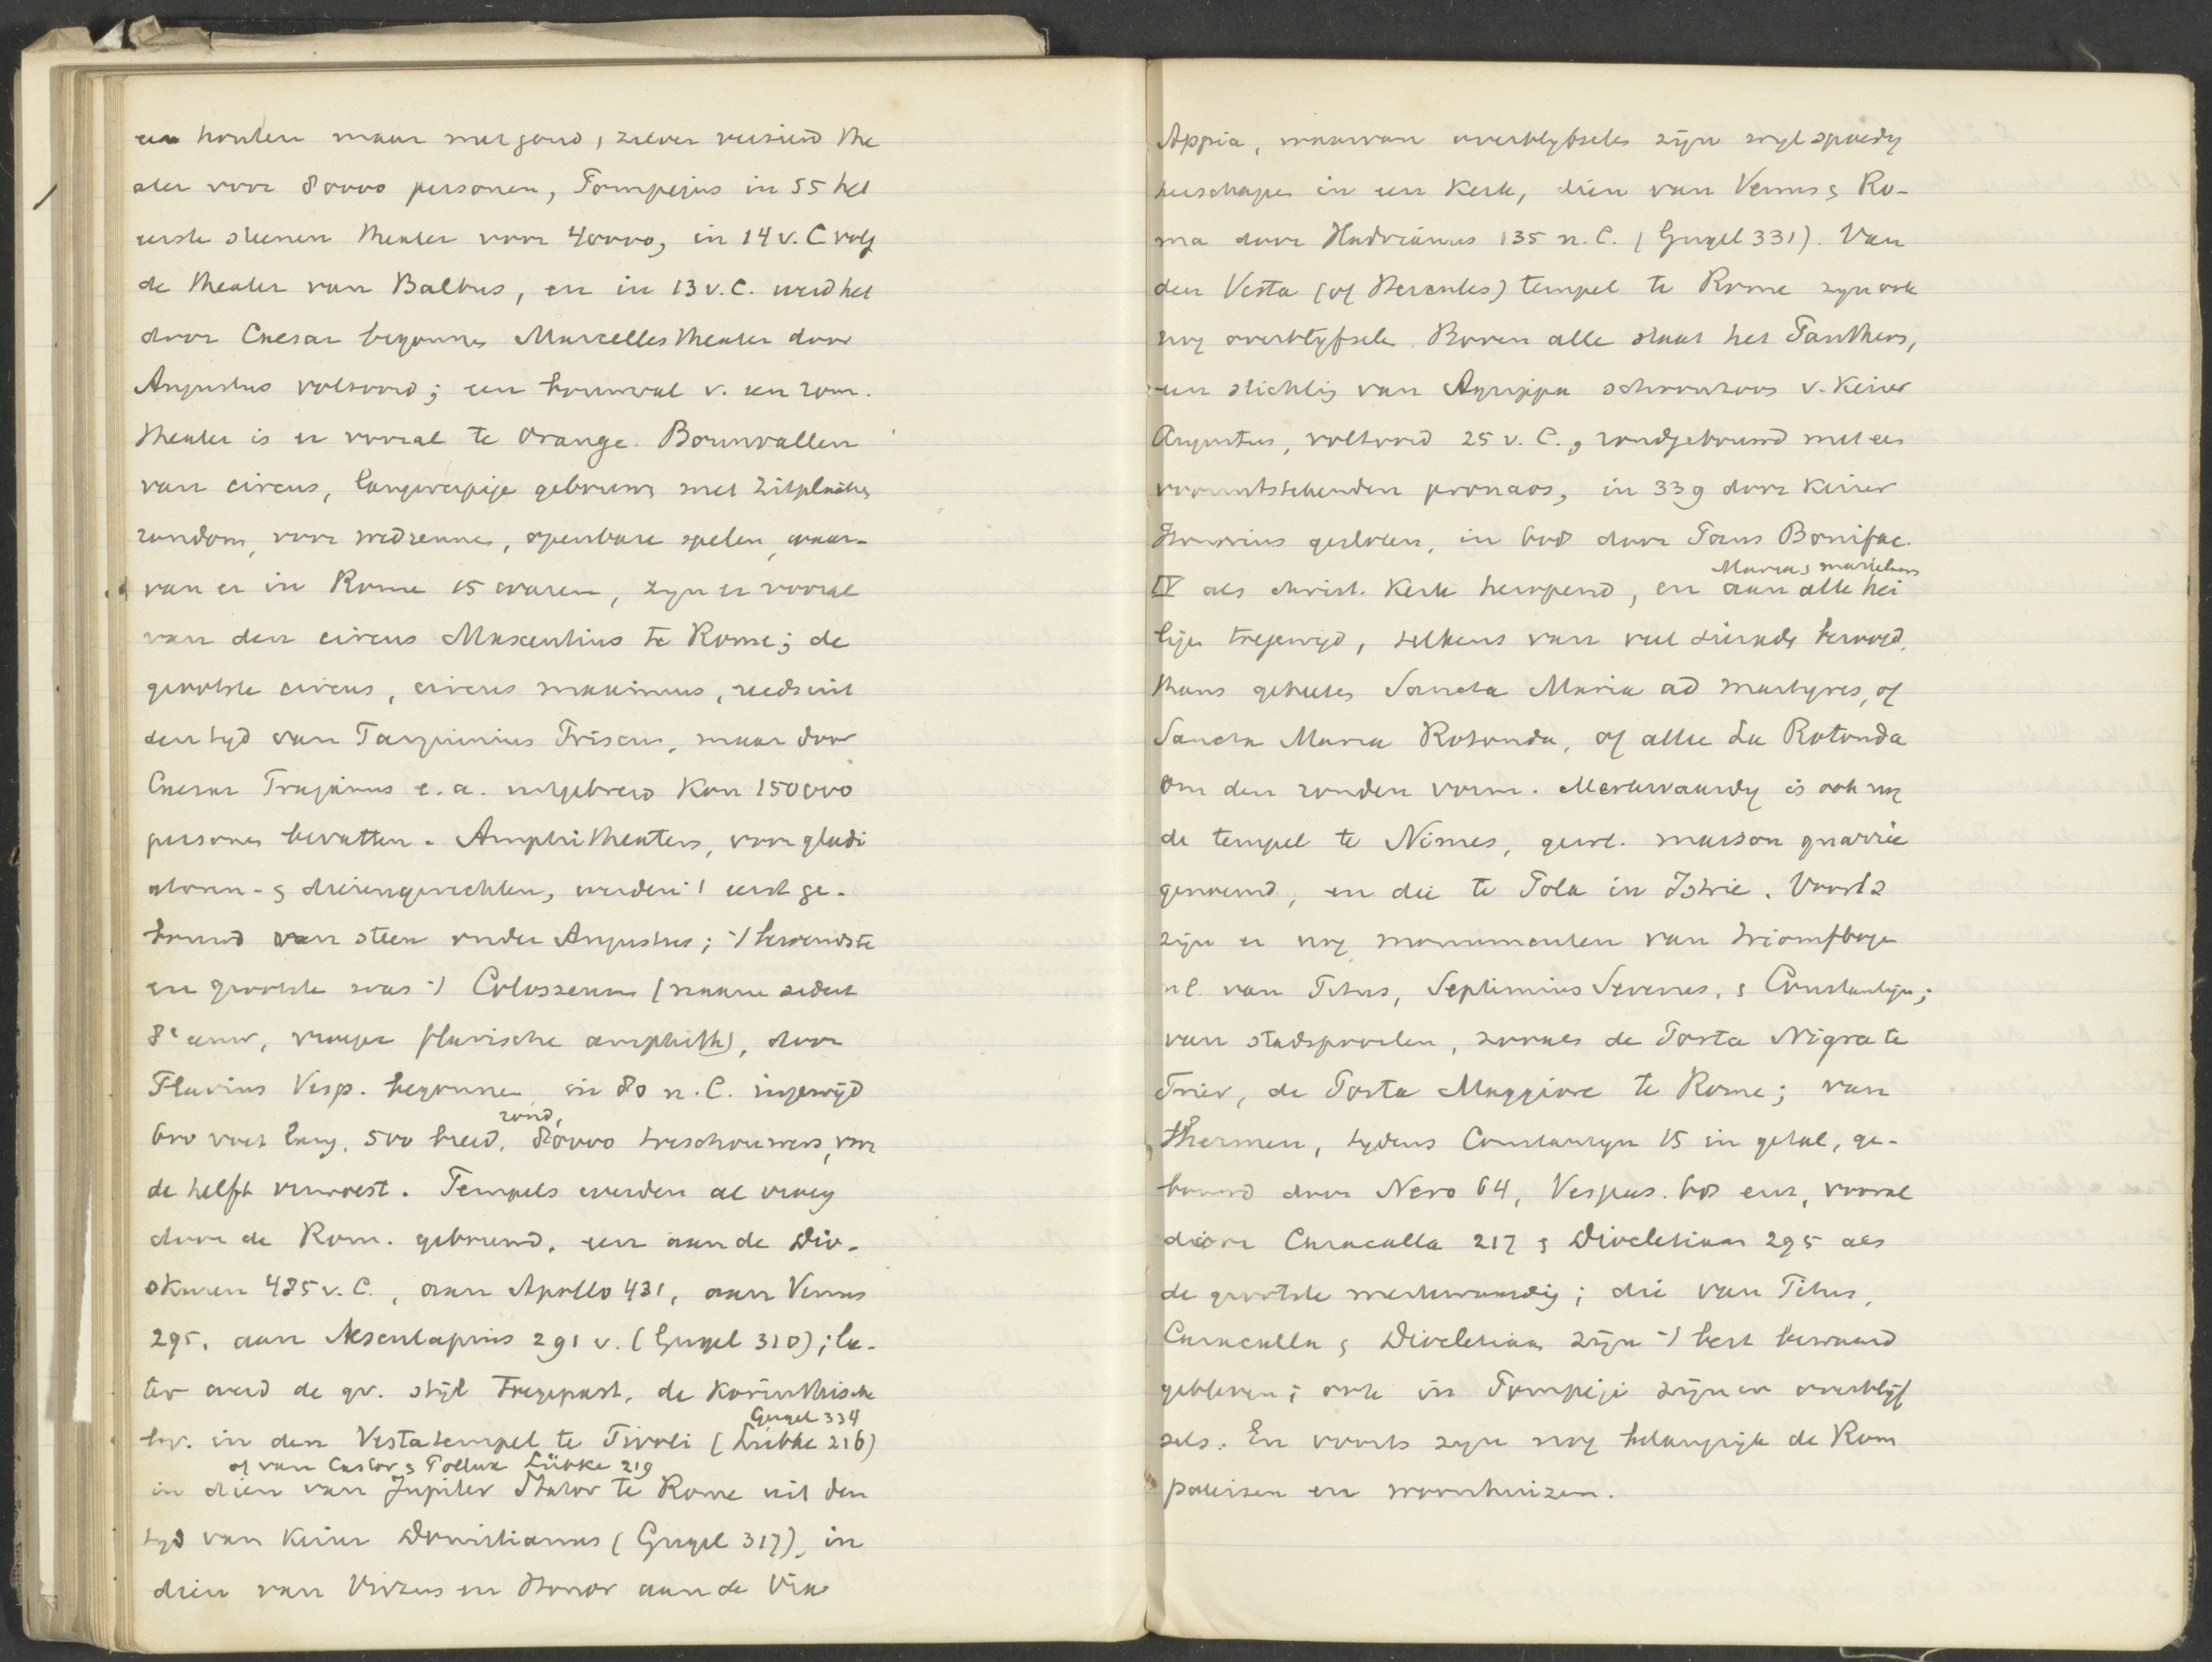 een houten maar met goud, zilver versierd the
ater voor 80000 personen, Pompejus in 55 het
eerste steenen theater voor 40000, in 14 v. C volg
de theater van Balbus, en in 13 v. C. werd het
door Caesar begonnen Marcellestheater door
Augustus voltooid; een bouwval v. een rom.
theater is er vooral te Orange. Bouwvallen
van circus, langwerpige gebouwen met zitplaatsen
rondom, voor wedrennen, openbare spelen, waar-
van er in Rome 15 waren, zyn er vooral
van den circus Maxentius te Rome; de
grootste circus, circus maximus, reeds uit
den tyd van Tarquinius Priscus, maar door
Caesar Trajanus e. a. uitgebreid kon 150000
personen bevatten. Amphitheaters, voor gladi
atoren- & dierengevechten, werden 't eerst ge-
bouwd van steen onder Augustus; 't beroemdste
en grootste was 't Colosseum (naam sedert
8e eeuw, vroeger flavische amphith), door
Flavius Vesp. begonnen, in 80 n. C. ingewijd
rond,
600 voet lang, 500 breed, 80000 toeschouwers, voor
de helft verwoest. Tempels werden al vroeg
door de Rom. gebouwd, een aan de Dio-
skuren 485 v. C., aan Apollo 431, aan Venus
295, aan Aesculapius 291 v. (Gugel 310); la-
ter werd de gr. stijl toegepast, de korinthische
Gugel 334
bv. in den Vestatempel te Tivoli (Lübke 216)
of van Castor & Pollux Lübke 219
in dien van Jupiter Stator te Rome uit den
tyd van keizer Domitianus (Gugel 317), in
dien van Virtus en Honor aan de Via
Appia, waarvan overblyfselen zijn
herschapen in een kerk, dien van Venus & Ro-
ma door Hadrianus 135 n. C. (Gugel 331). Van
den Vesta (of Hercules) tempel te Rome zyn ook
nog overblyfselen. Boven alle staat het Pantheon,
een stichting van Agrippa schoonzoon v. keizer
Augustus, voltooid 25 v. C., rondgebouwd met een
vooruitstekenden pronaos, in 339 door keizer
Honorius gesloten, in 608 door Paus Bonifac.
Maria & martelaars
IV als christ. kerk heropend, en aan alle hei
ligen toegewijd, telkens van veel sieraden beroofd,
thans geheeten Sancta Maria ad martyres, of
Sancta Maria Rotonda, of alleen La Rotonda
om den ronden vorm. Merkwaardig is ook nog
de tempel te Nimes, gewl. maison quarrée
genoemd, en die te Pola in Istrie. Voorts
zijn er nog monumenten van triomfbogen
nl. van Titus, Septimius Severus, & Constantijn;
van stadspoorten, zooals de Porta Nigra te
Trier, de Porta Maggiore te Rome; van
thermen, tydens Constantyn 15 in getal, ge-
bouwd door Nero 64, Vespas. 68 enz, vooral
door Caracalla 217 & Diocletiaan 295 als
de grootste merkwaardig; die van Titus,
Caracalla & Diocletiaan zijn 't best bewaard
gebleven; ook in Pompeji zijn er overblijf
sels. En voorts zyn nog belangrijk de Rom
paleizen en woonhuizen.